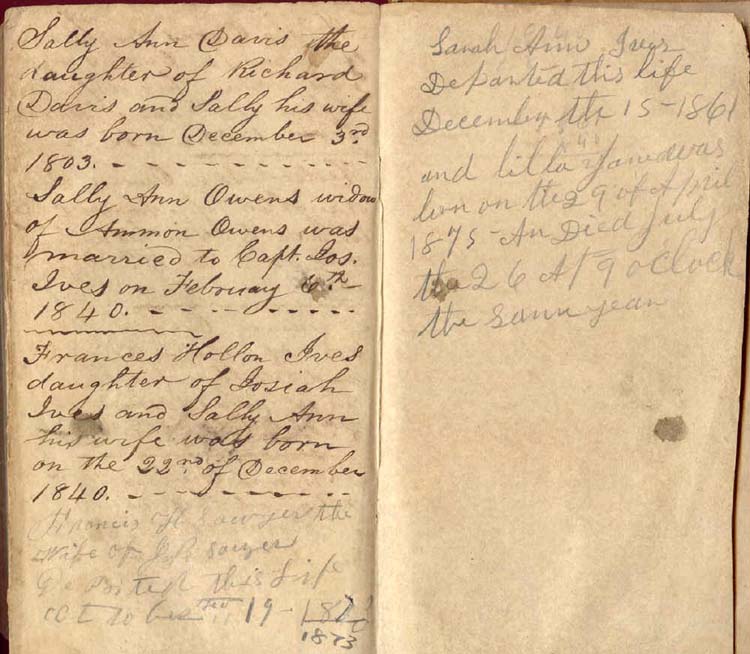 Sally Ann Davis the
daughter of Richard
Davis and Sally his wife
was born December 3rd
1803.
Sally Ann Owens widow
of Ammon Owens was
married to Capt. Jos.
Ives on February 6th
1840.
Frances Hollon Ives
daughter of Josiah
Ives and Sally Ann
his wife was born
on the 22nd of December
1840.
Francis H Sawyer the
Wife of Sawyer
this Life
19 - 187
1873
Sarah Ann Ives
Departed this life
December the 15 - 1861
and lilla was
born on the 29 of April
1875 - An Died July
the 26 At 9 oClock
the Same year